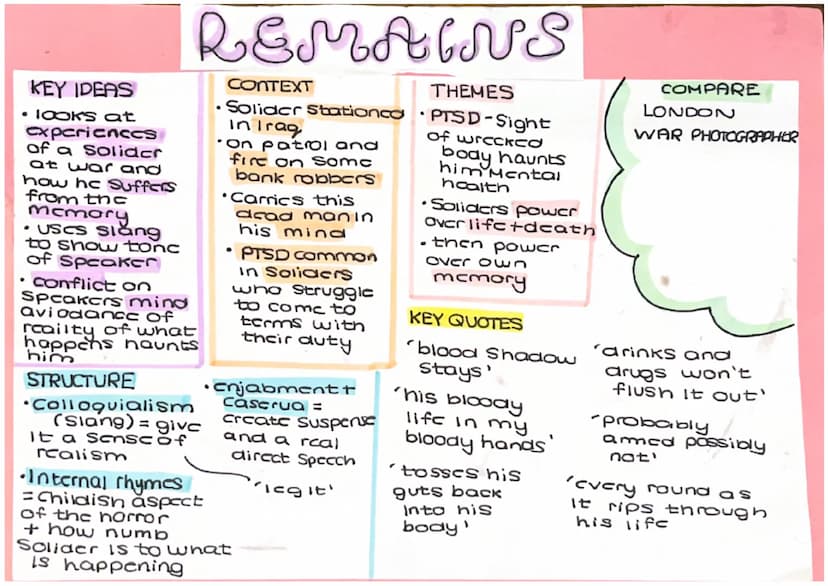 REMAINS
KEY IDEAS
• looks at
experiences
of a solider
at war and
how he suffers
from the
memory
• uses slang
to show tone
of speaker
• conflict on
speakers mind
aviodance of
reailty of what
happens haunts
him
CONTEXT
• Solider stationed
in Iraq
• on patrol and
fire on some
bank robbers
• Carries this
dead man in
his mind
• PTSD common
in Soliders
who struggle
to come to
terms with
their duty
THEMES
• PTSD - Sight
of wrecked
body haunts
him Mental
health
• Soliders power
over life + death
• then power
over own
memory
COMPARE
LONDON
WAR PHOTOGRAPHER
STRUCTURE
• Colloquialism
(slang) = give
it a sense of
realism
• Internal rhymes
= childish aspect
of the horror
+ how numb
Solider is to what
is happening
• enjabment +
caserua =
create suspense
and a real
direct speech
'leg it'
KEY QUOTES
'blood shadow
stays'
'his bloody
life in my
bloody hands'
'tosses his
guts back
into his
body'
'drinks and
drugs won't
flush it out'
'probably
armed possibly
not'
'every round as
it rips through
his life